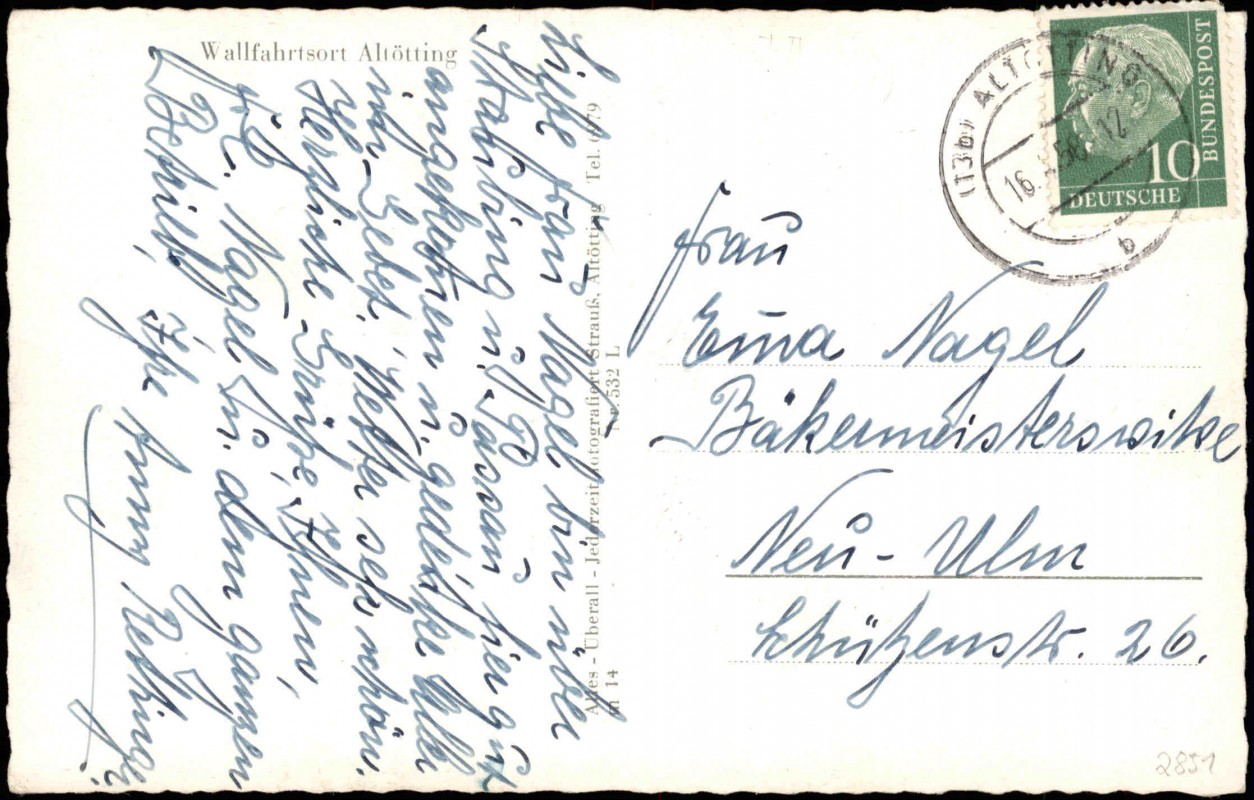 Wallfahrtsort Altötting
Liebe Frau Nagel bin über
Straubing u. Passau hier gut
angekommen u. gedenke Aller
im Gebet, Wetter sehr schön.
Herzliche Grüße, Ihnen,
Fr. Nagel u. dem ganzen
Betrieb, Ihre Anny
Alles - Überall - Jederzeit fotografiert Strauß, Altötting Tel. 6479
m 14 Nr. 532 L
(13b) ALTÖTTING
16. 58. 12
b
10
DEUTSCHE
BUNDESPOST
Frau
Emma Nagel
Bäkermeisterswitwe
Neu-Ulm
Schützenstr. 26.
2851